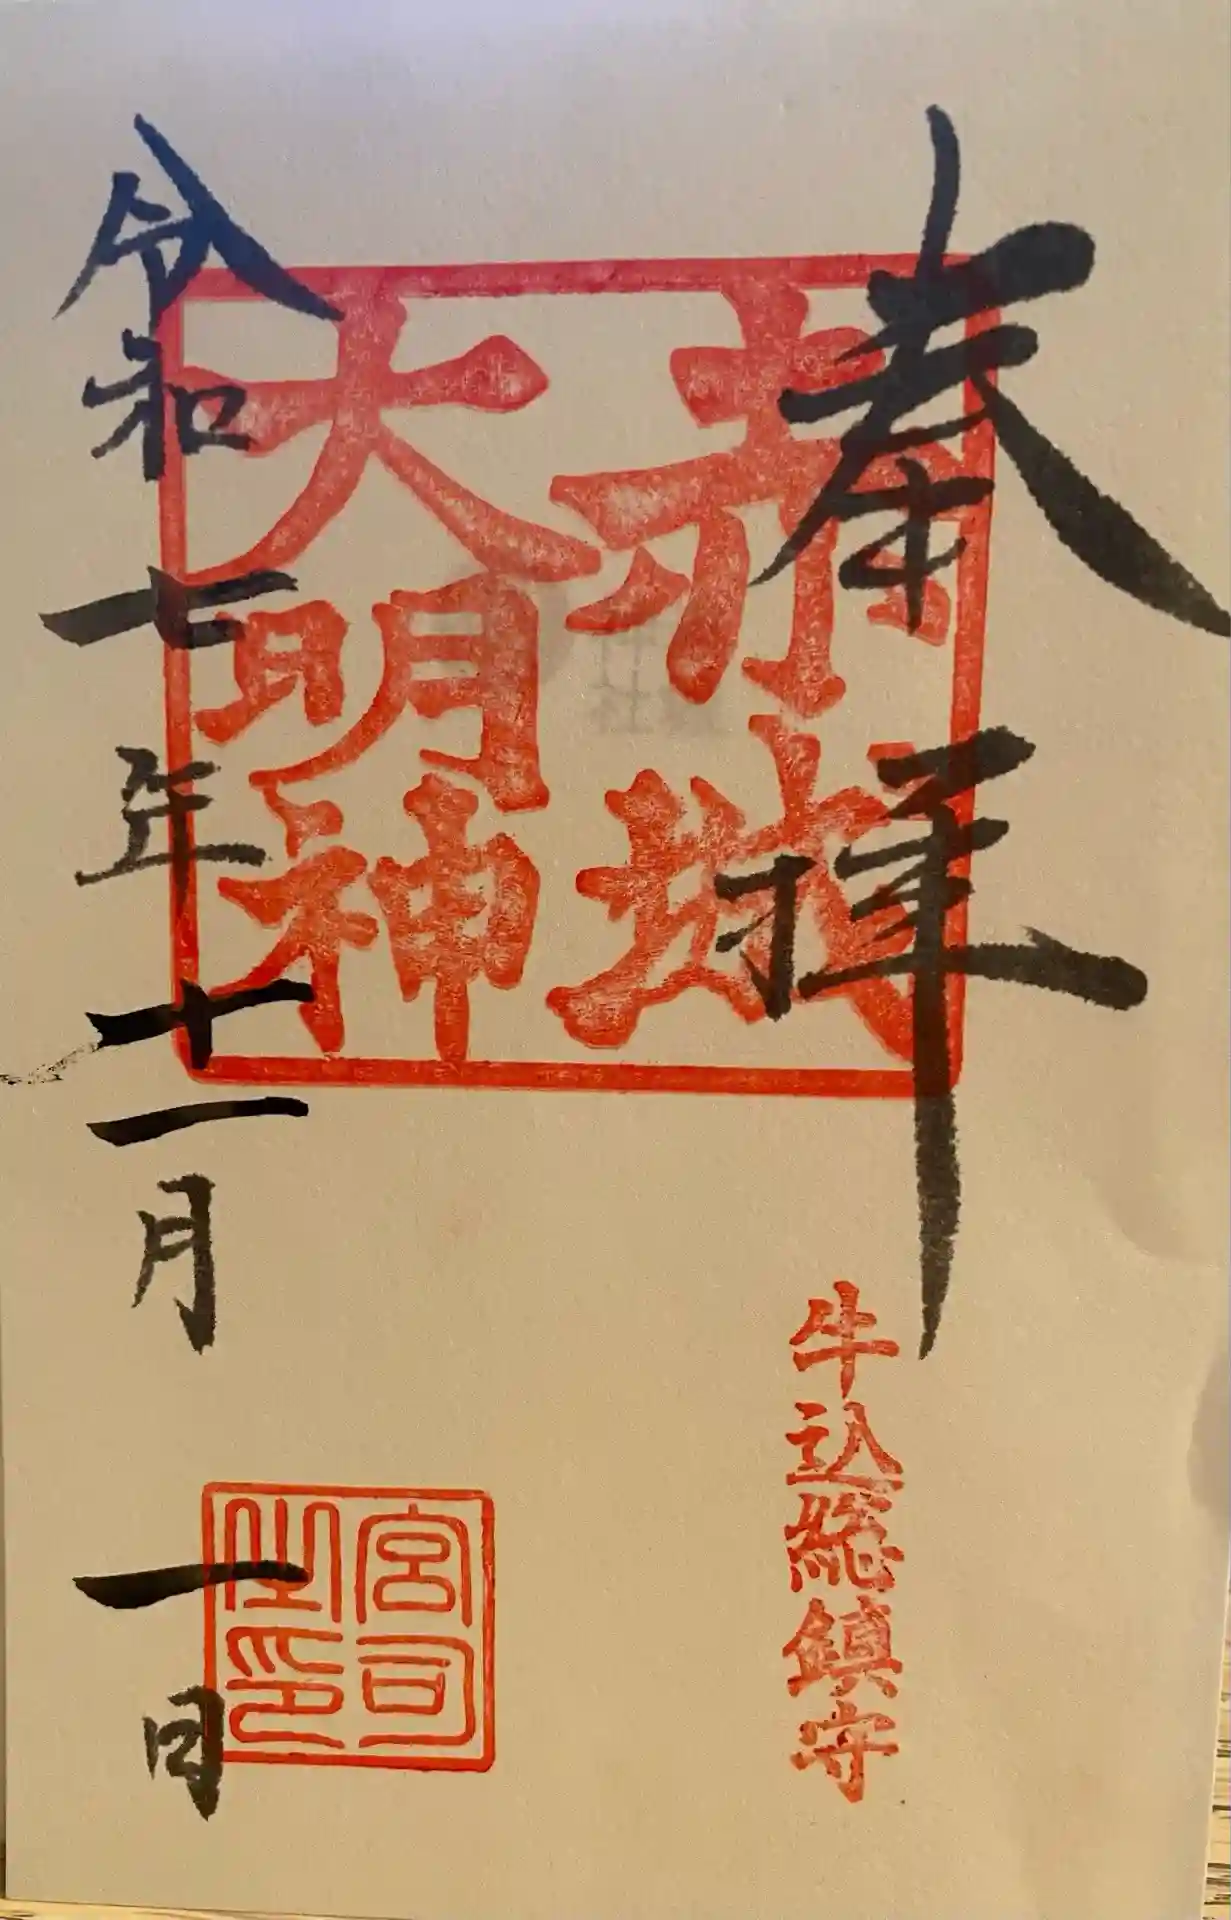 奉拝
牛込総鎮守
赤城
大明神
宮司
之印
令和七年十一月一日